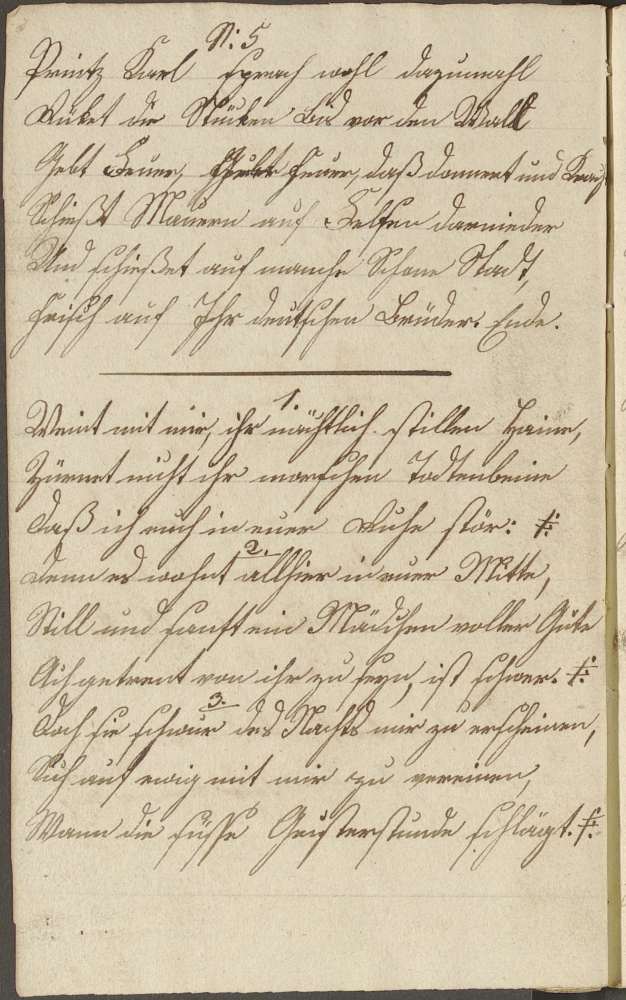 N: 5
Printz Karl sprach wohl dazumahl
Rüket die Stücken bis vor den Wall
Gebt Feuer, Feuer, daß donnert und krach
Schießt Mauern auf Felsen darnieder
Und schießet auf manche Schöne Stadt,
Frisch auf Ihr deutschen Brüder. Ende.
1.
Weint mit mir, ihr nächtlich stillen Haine,
Zürnet nicht ihr morschen Todtenbeine
Daß ich euch in euer Ruhe stör:
2.
Denn es wohnt allhier in euer Mitte,
Still und sanft ein Mädchen voller Güte
Ach getrent von ihr zu seyn, ist schwer.
3.
Doch sie schwur des Nachts mir zu erscheinen,
Sich auf ewig mit mir zu vereinen,
Wann die süsse Geisterstunde schlägt.